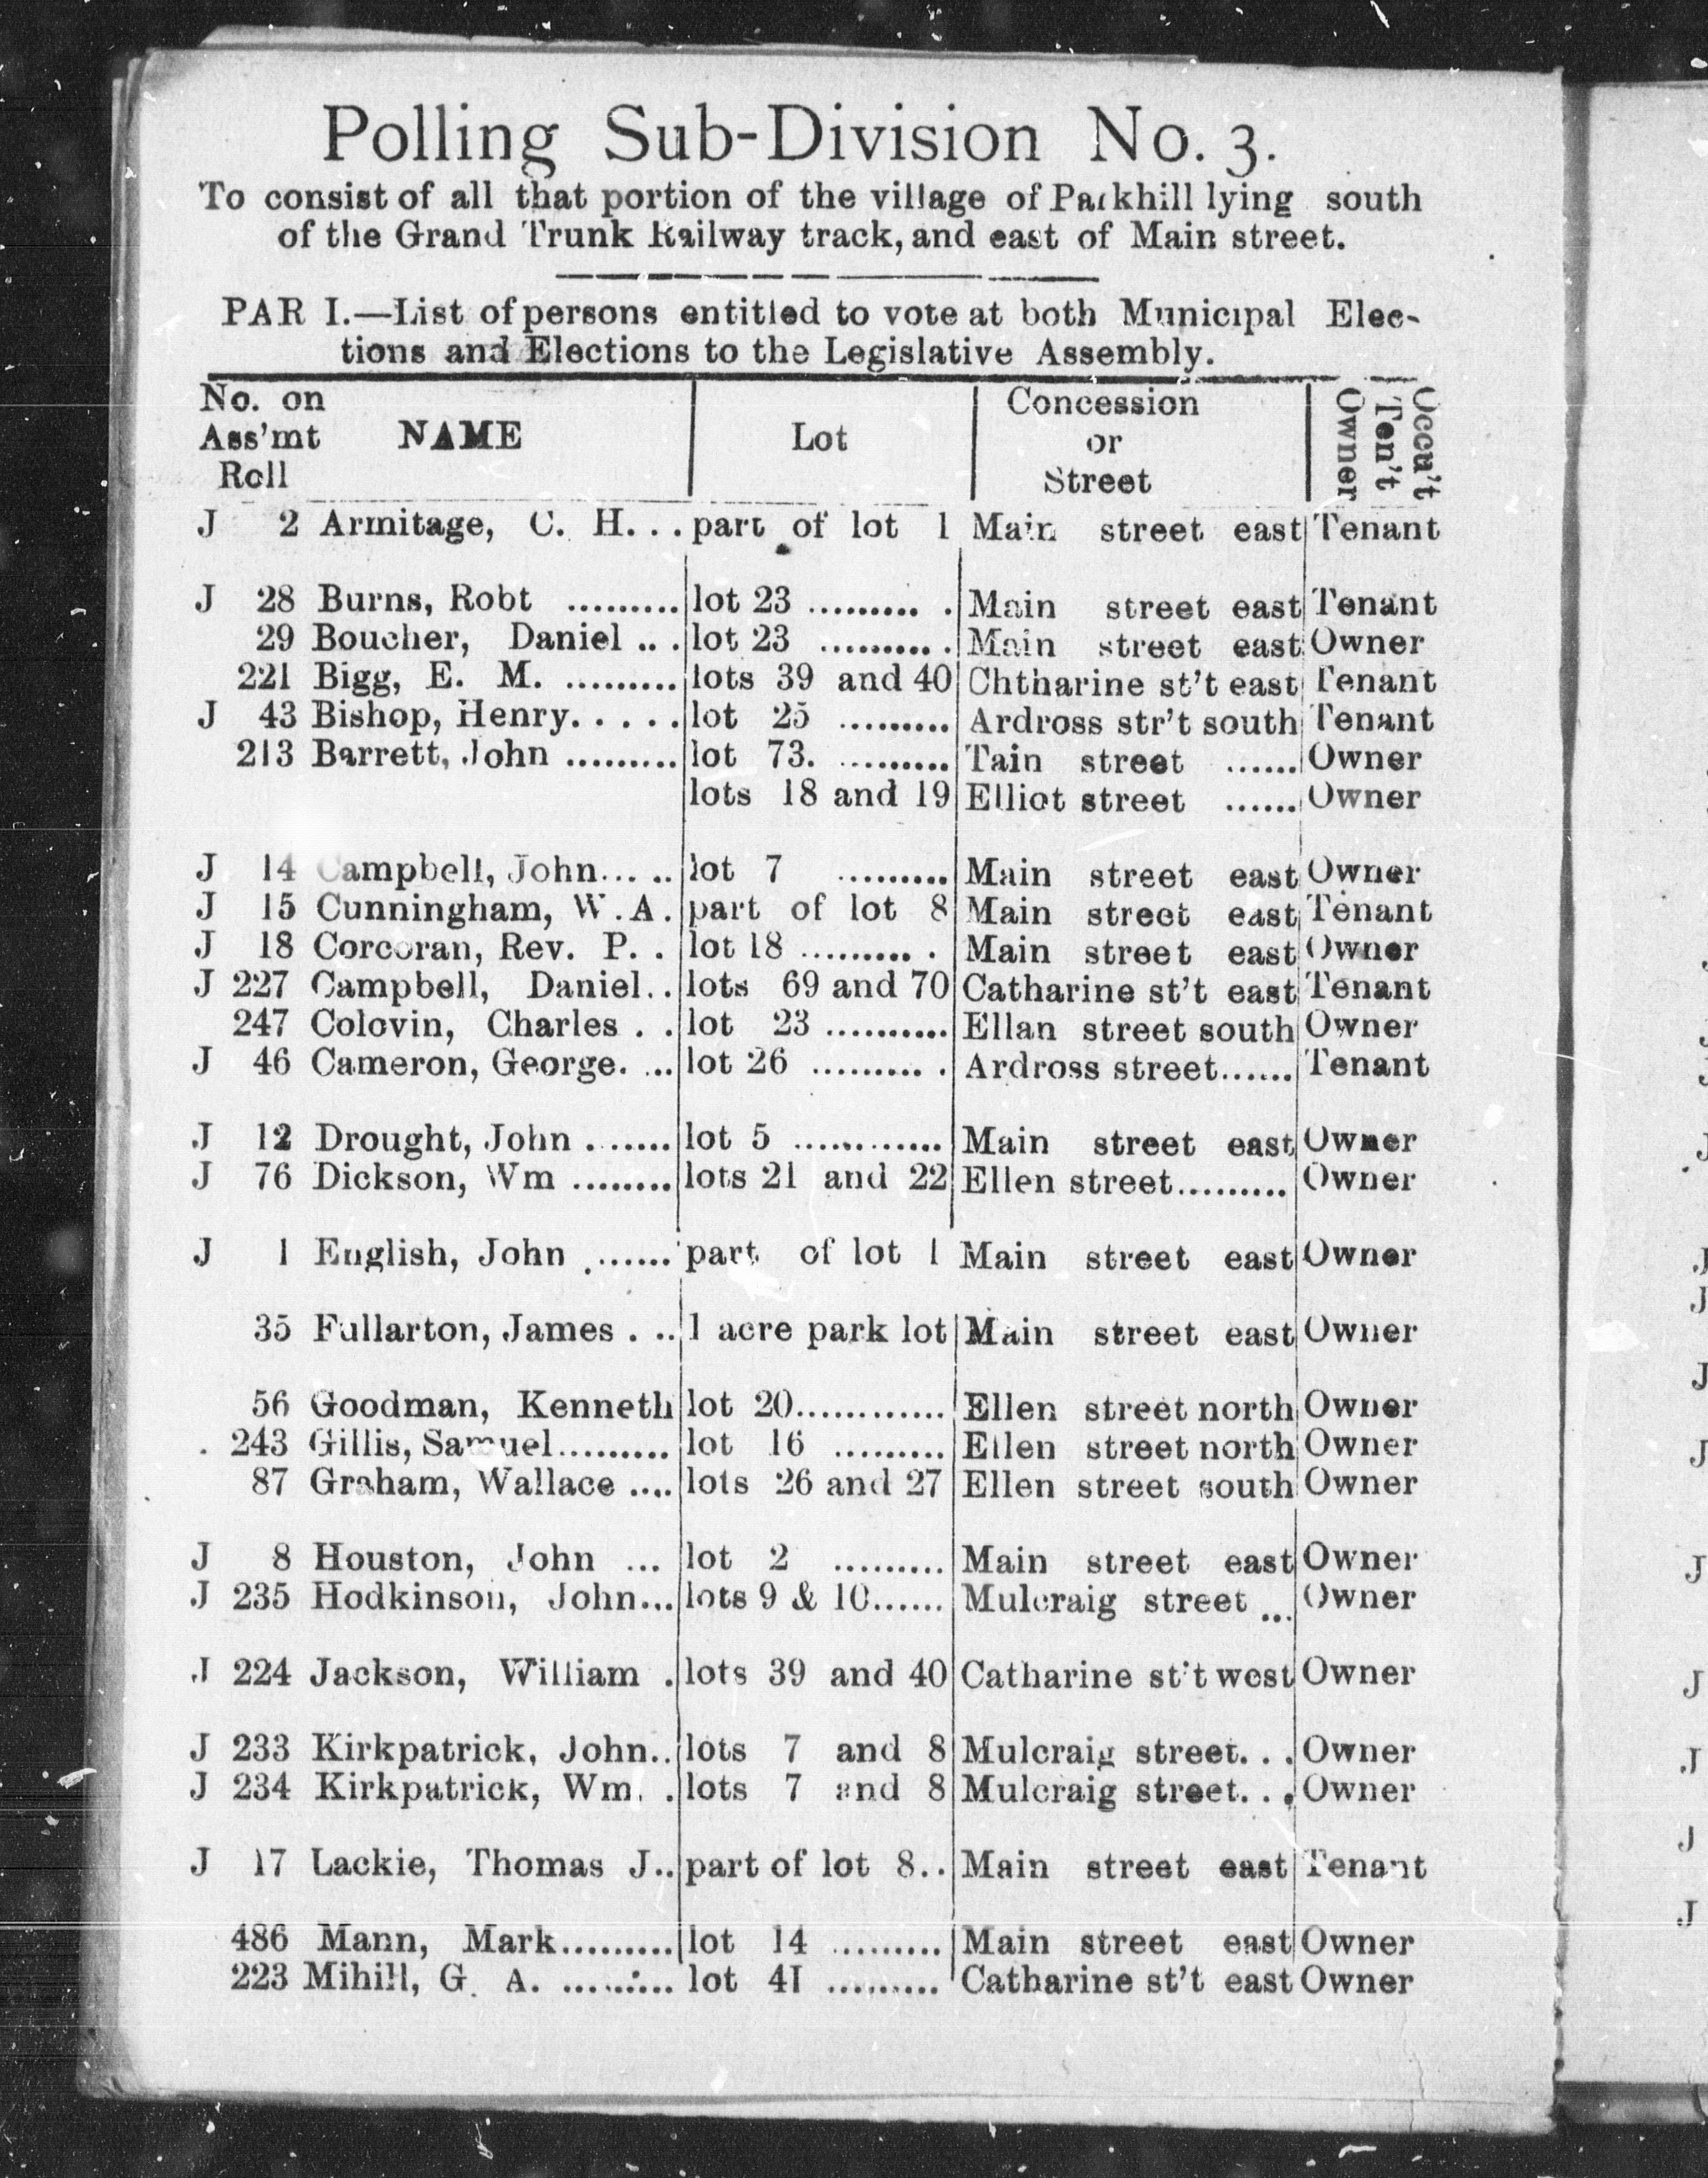 Polling Sub-Division No. 3.
To consist of all that portion of the village of Parkhill lying south
of the Grand Trunk Railway track, and east of Main street.
PAR I.—List of persons entitled to vote at both Municipal Elec-
tions and Elections to the Legislative Assembly.
No. on Ass'mt Roll NAME Lot Concession or Street Owner Ten't Occu't
J 2 Armitage, C. H. . . part of lot 1 Main street east Tenant
J 28 Burns, Robt ......... lot 23 ......... . Main street east Tenant
29 Boucher, Daniel .. . lot 23 ......... . Main street east Owner
221 Bigg, E. M. ......... lots 39 and 40 Chtharine st't east Tenant
J 43 Bishop, Henry. . . . . lot 25 ......... Ardross str't south Tenant
213 Barrett, John ......... lot 73. ......... Tain street ...... Owner
lots 18 and 19 Elliot street ...... Owner
J 14 Campbell, John... .. lot 7 ......... Main street east Owner
J 15 Cunningham, W.A. part of lot 8 Main street east Tenant
J 18 Corcoran, Rev. P. . lot 18 ......... . Main street east Owner
J 227 Campbell, Daniel.. lots 69 and 70 Catharine st't east Tenant
247 Colovin, Charles . . lot 23 .......... Ellan street south Owner
J 46 Cameron, George. ... lot 26 ......... . Ardross street...... Tenant
J 12 Drought, John ....... lot 5 ............ Main street east Owner
J 76 Dickson, Wm ........ lots 21 and 22 Ellen street......... Owner
J 1 English, John ....... part of lot 1 Main street east Owner
35 Fullarton, James . .. 1 acre park lot Main street east Owner
56 Goodman, Kenneth lot 20............ Ellen street north Owner
243 Gillis, Samuel......... lot 16 ......... Ellen street north Owner
87 Graham, Wallace .... lots 26 and 27 Ellen street south Owner
J 8 Houston, John ... lot 2 ......... Main street east Owner
J 235 Hodkinson, John... lots 9 & 10...... Mulcraig street ... Owner
J 224 Jackson, William . lots 39 and 40 Catharine st't west Owner
J 233 Kirkpatrick, John.. lots 7 and 8 Mulcraig street. . . Owner
J 234 Kirkpatrick, Wm. . lots 7 and 8 Mulcraig street. . . Owner
J 17 Lackie, Thomas J.. part of lot 8.. Main street east Tenant
486 Mann, Mark......... lot 14 ......... Main street east Owner
223 Mihill, G. A. ......... lot 41 ......... Catharine st't east Owner
J
J
J
J
J
J
J
J
J
J
J
J